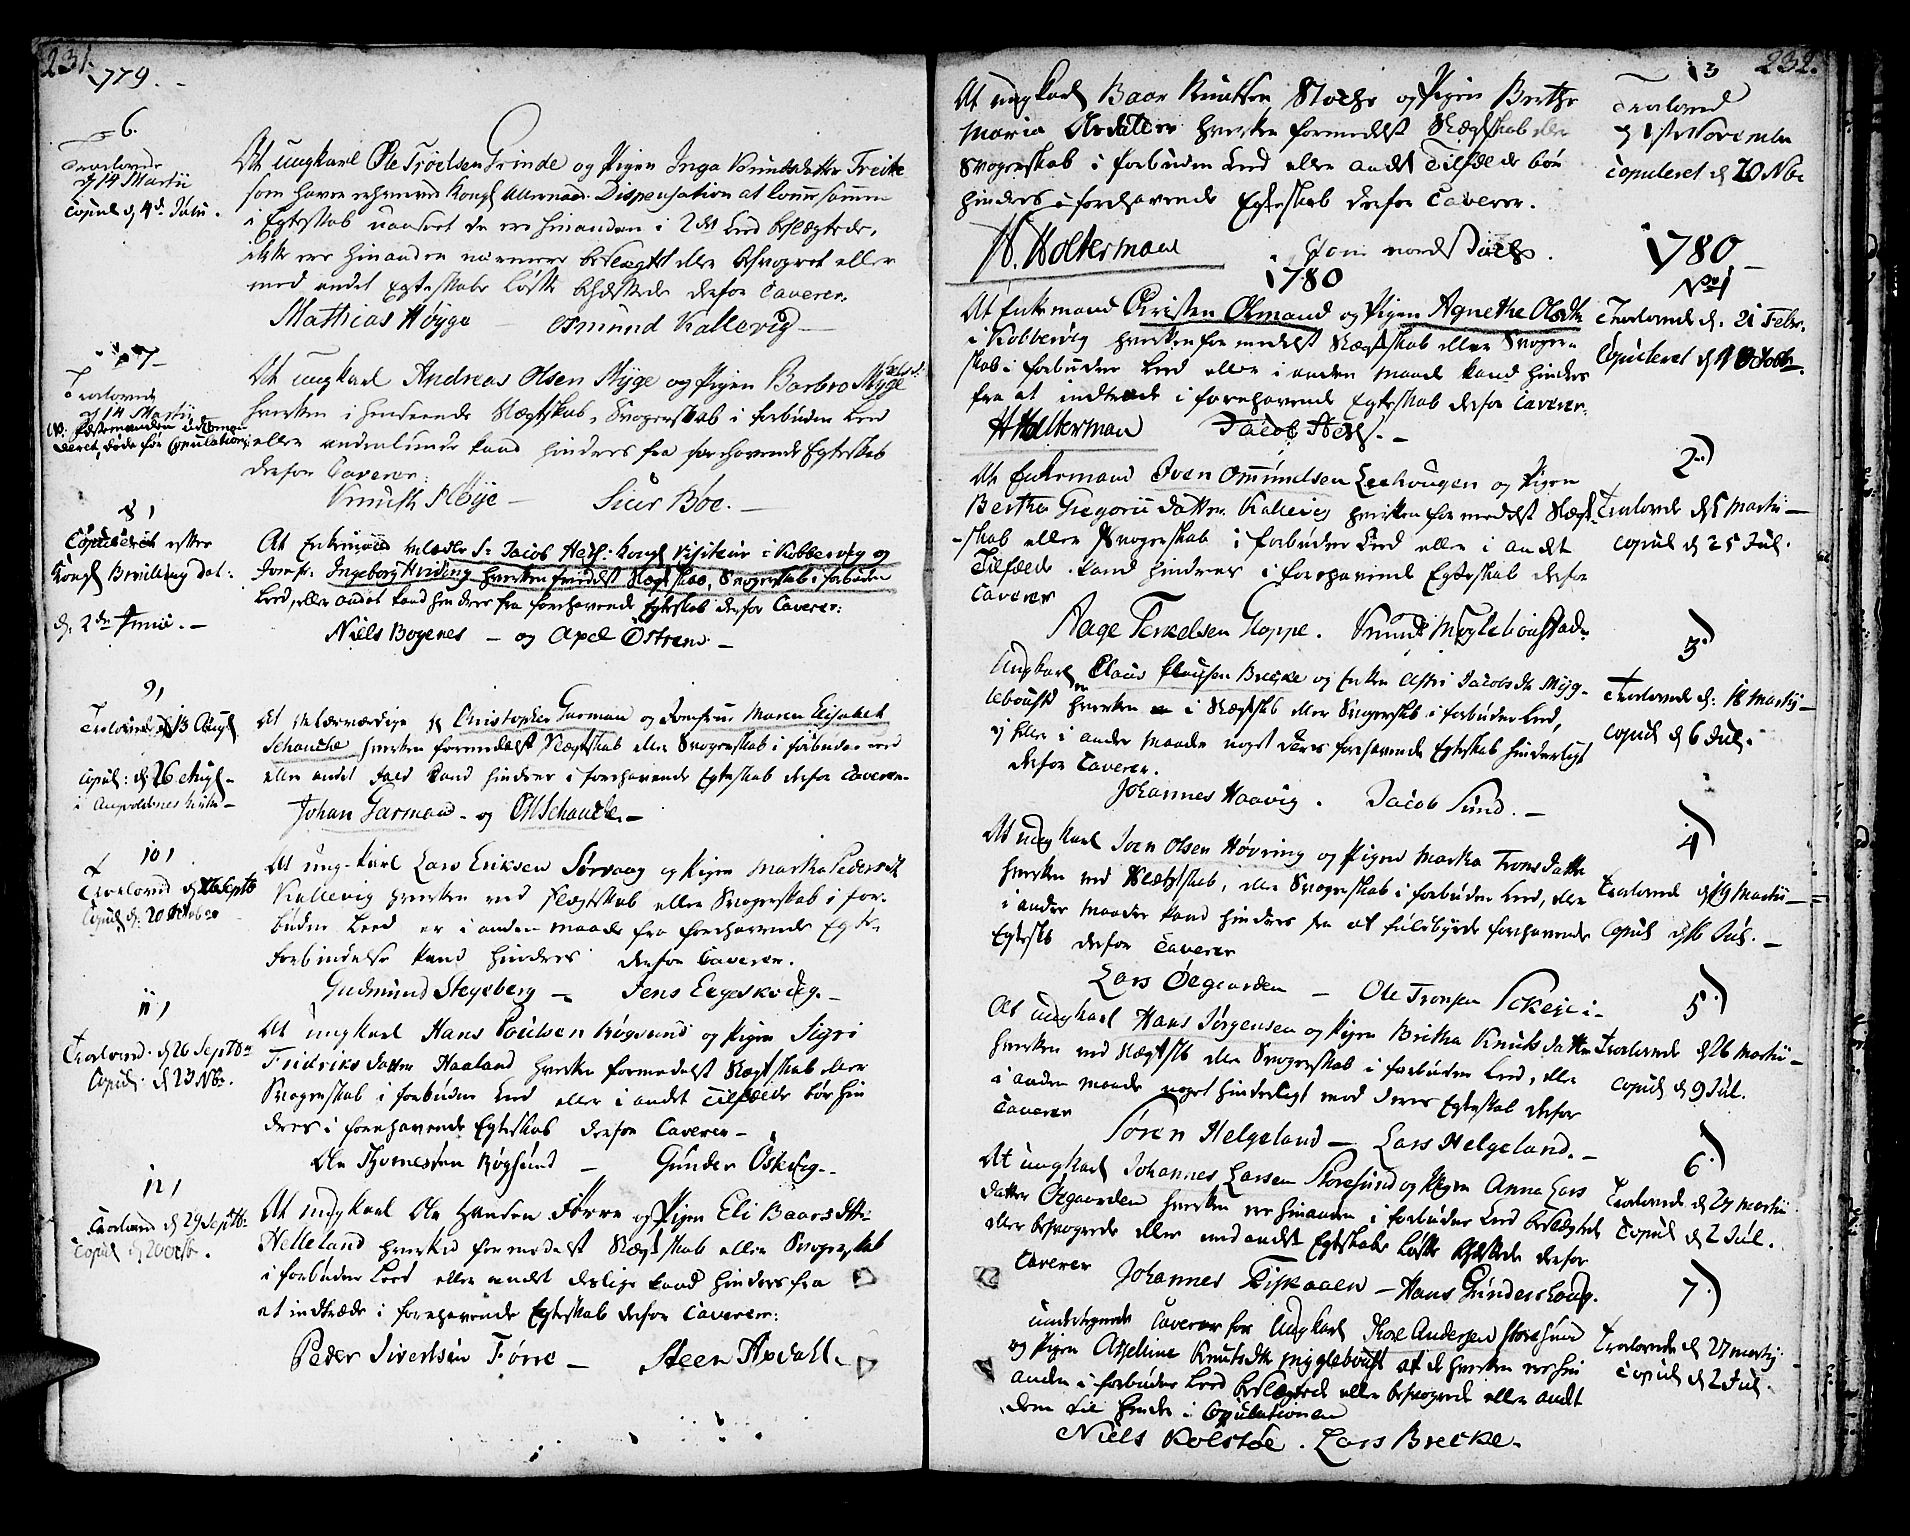 231.
1779.
6.
Trolovede
d 14 Martii
Copul d 4de Julii.
At Ungkarl Ole Trøelsen Grinde og Pigen Inga Knudsdatter
som haver erhværvet Kongl Allernaad. Dispensation at komme sammen
i Egteskab uanseet de ere hinanden i 2det Leed beslægtede,
ikke ere hinanden nærmere beslægtet eller besvogret eller
med andet Egteskabs Løfte behæftede derfor Caverer.
Mathias Høyge — Osmund Kallevig —
7
Trolovede
d 14 Martii
døde før Copulation
At Ungkarl Andreas Olsen Nyge og Pigen Barbro Myge
hverken i henseende Slægtskab, Svogerskab i forbuden Leed
eller andenlunde kand hindres fra forehavende Egteskab
derfor Caverer:
Knudt Høije — Siur Bøe. —
8
Copuleret efter
Kongl Bevilling dat:
d. 2den Junii. —
At Enkemand Sr Jacob Kongl Visiteur i Kobbervig og
Jomfr: Ingeborg Hviding hverken formedelst Slægtskab, Svogerskab i forbuden
Leed, eller andet kand hindres fra forehavende Egteskab derfor Caverer:
Niels Bogenes — og Axel Østrem —
9
Trolovede d 13 Aug
Copul: d: 26 Aug.
i Augvaldsnes Kirke —
At Velærværdige Hr Christopher Garman og Jomfrue Maren Elisabet
Schancke hverken formedelst Slægtskab eller Svogerskab i forbuden Leed
eller andet kand hindres i forehavende Egteskab derfor Caverer.
Johan Garman — og Schancke. —
10
Trolovede d 26 Septb
Copul d: 20 Octobr
At Ungkarl Lars Eriksen Sørvaag og Pigen Martha Pedersdt
Kallevig hverken ved Slægtskab eller Svogerskab i for-
buden Leed er i anden maade fra forehavende Egte-
forbindelse kand hindres derfor Caverer.
Gudmund Stegeberg — Jens
11
Trolovede d 26 Septbr
Copul. d 23 Nbr.
At Ungkarl Hans Poulsen Røgsund og Pigen Sigri
Fridriksdatter Haaland hverken formedelst Slægtskab eller
Svogerskab i forbuden Leed eller i andet Tilfælde bør hin
dres i forehavende Egteskab derfor Caverer —
Ole Røgsund — Gunder
12
Trolovede d 29 Septbr
Copul d 20 Octbr.
At Ungkarl Ole Hansen Førre og Pigen Eli Baarsdtt:
Helleland hverken formedelst Slægtskab eller Svogerskab
i forbuden Leed eller andet deslige kand hindres fra
at indtræde i forehavende Egteskab derfor Caverer:
Peder Sivertsen Førre — Steen
232.
13
Trolovede
d 1ste Novembr
Copuleret d 20 Nbr
At Ungkarl Baar Knutsen og Pigen Berthe
Maria hverken formedelst Slægtskab eller
Svogerskab i forbuden Leed eller andet Tilfælde bør
hindres i forehavende Egteskab derfor Caverer.
H. Holterman
1780
1780
No 1
Trolovede d. 21 Febr.
Copuleret d 1 Octobr.
At Enkemand Christen Osmund og Pigen Agnethe Olsdtr
i Kobbervig hverken formedelst Slægtskab eller Svoger-
skab i forbuden Leed eller i anden maade kand hindres
fra at indtræde i forehavende Egteskab derfor Caverer.
H Holterman Jacob
2)
Trolovede d 5 Martii —
Copul d 25 Jul.
At Enkemand Iven Omundsen Leehougen og Pigen
Bertha Gregorii datter Kallevig hverken formedelst Slægt-
skab eller Svogerskab i forbuden Leed eller i andet
Tilfælde kand hindres i forehavende Egteskab derfor
Caverer
Aage Terkelsen Hoppe. Knud Møglebousted
3)
Trolovede d: 18 Martii —
Copul d 6 Jul.
Ungkarl Claus Clausen Brecke og Enken Astri Jacobsdtr Mýg-
leboust hverken er i Slægtskab eller Svogerskab i forbuden Leed,
ej eller i anden maade noget deres forehavende Egteskab hinderligt
derfor Caverer.
Johannes Haavig. Jacob Sund. —
4)
Trolovede d 19 Martii —
Copul d 16 Jul. —
At Ungkarl Iven Olsen Høvring og Pigen Martha Tronsdatter
hverken ved Slægtskab, eller Svogerskab i forbuden Leed, eller
i anden maade kand hindres fra at fuldbyrde forehavende
Egteskab derfor Caverer
Lars Øegaarden — Ole Tronsen
5)
Trolovede d 26 Martii —
Copul d 9 Jul.
At Ungkarl Hans Jørgensen og Pigen Britha Knutsdatter
hverken ved Slægtskab eller Svogerskab i forbuden Leed, eller
i anden maade noget hinderligt mod deres Egteskab derfor
Caverer
Søren Helgeland — Lars Helgeland. —
6)
Trolovede d 27 Martii
Copul d 2 Jul.
At Ungkarl Johannes Larsen Storesund og Pigen Anna Lars
datter Øegaarden hverken ere hinanden i forbuden Leed beslægtede
eller besvogrede eller med andet Egteskabs Løfte behæftede derfor
Caverer
Johannes — Hans Gunders
7)
Trolovede d 27 Martij
Copul d 2 Jul.
Undertegnede Caverer for Ungkarl Thore Andersen Storesund
og Pigen Asseline Knutsdtr Myggleboust at de hverken ere hin
anden i forbuden Leed beslægtede eller besvogrede eller andet
dem til hinder i Copulationen
Niels Kolstøe. Lars Brecke.